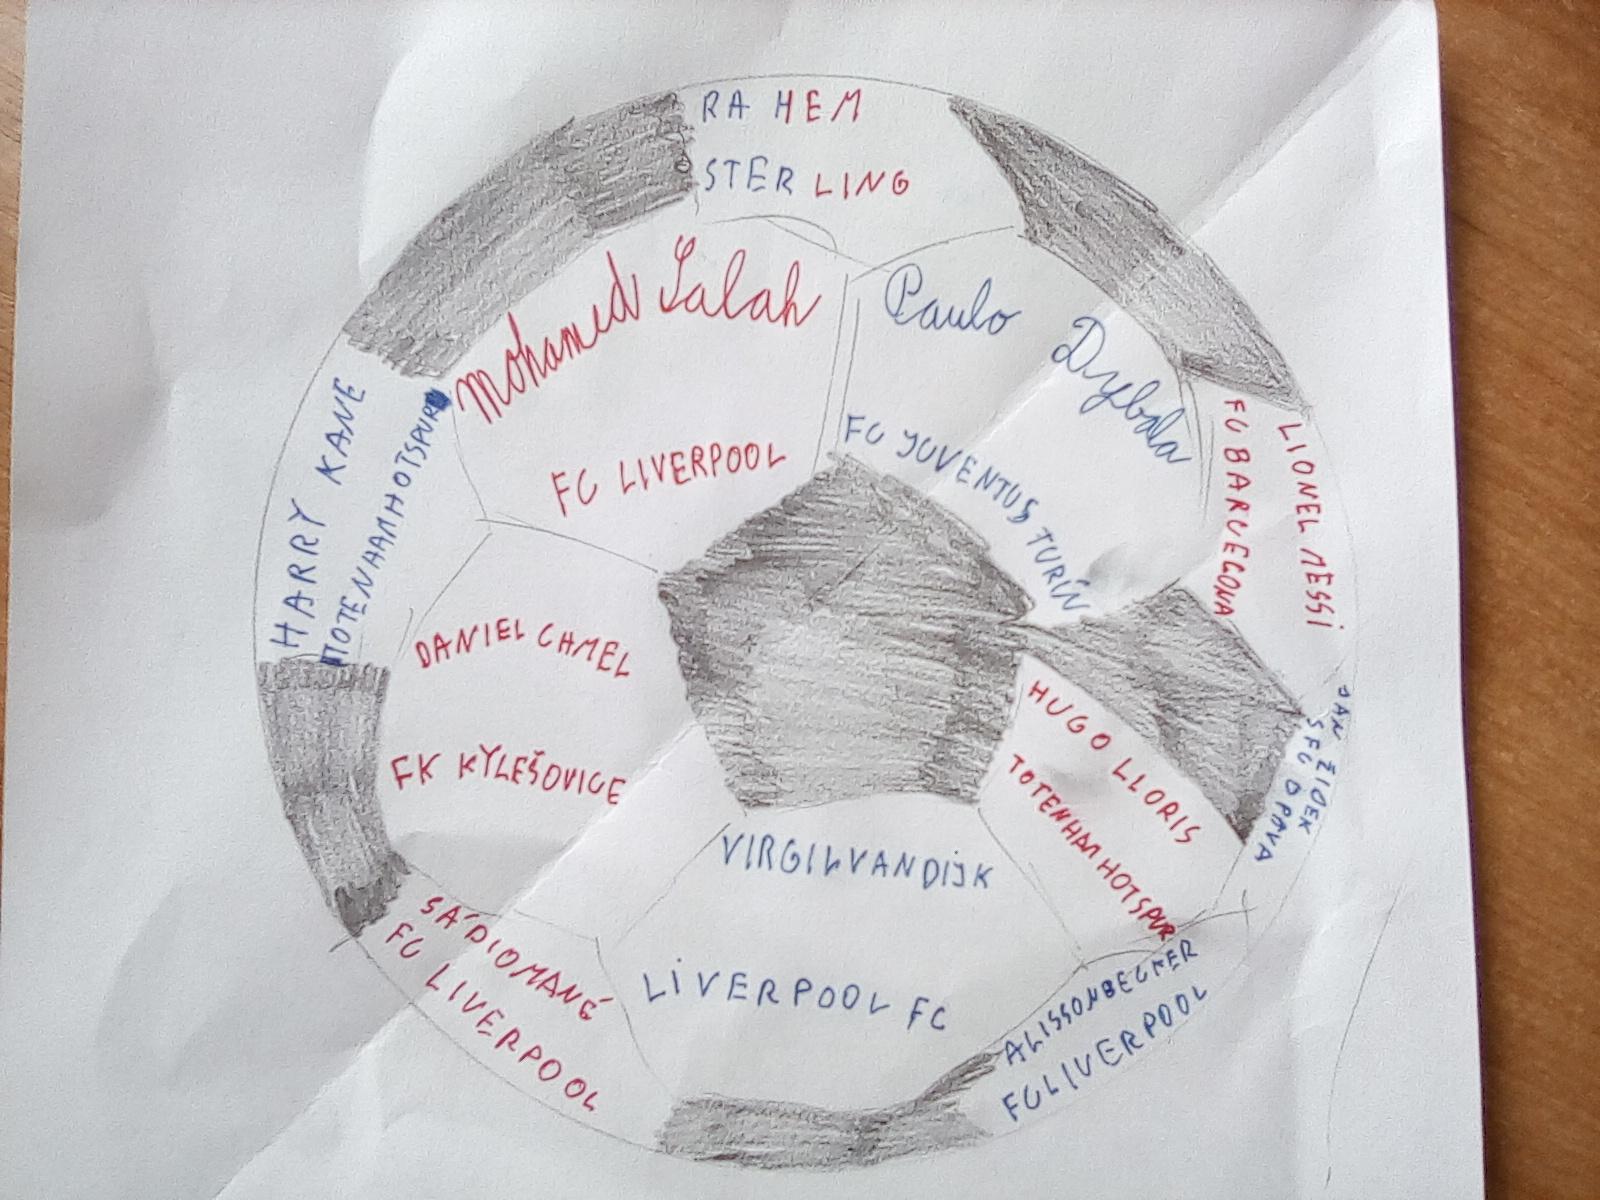 RA HEM
STER LING
Mohamed Salah
FC LIVERPOOL
Paulo Dybala
FC JUVENTUS TURÍN
LIONEL MESSI
FC BARCEGONA
HARRY KANE
TOTENHAMHOTSPUR
DANIEL CHMEL
FK KYLEŠOVICE
HUGO LLORIS
TOTENHAM HOTSPUR
JAN ŽÍDEK
SFC OPAVA
VIRGILVANDIJK
LIVERPOOL FC
SÁDIOMANÉ
FC LIVERPOOL
ALISSONBECKER
FCLIVERPOOL